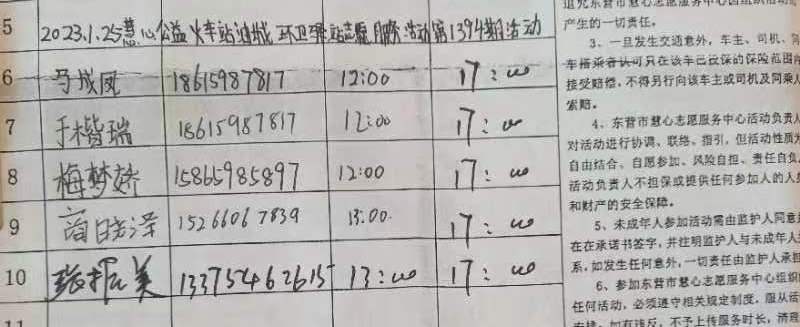 5 2023.1.25慧心公益火车站进城环卫驿站志愿服务活动第1394期活动
6 马成凤 18615987817 12:00 17:00
7 于楷瑞 18615987817 12:00 17:00
8 梅梦娇 15865985897 12:00 17:00
9 15266067839 13:00 17:00
10 张振美 13375462615 13:00 17:00
11
产生的一切责任。
3、一旦发生交通意外,车主、司机、
车搭乘者认可只在该车已投保的保险范围内
接受赔偿,不得另行向该车主或司机及同乘人
索赔。
4、东营市慧心志愿服务中心活动负责人
对活动进行协调、联络、指引,但活动性质为
自由结合、自愿参加、风险自担、责任自负
活动负责人不担保或提供任何参加人的人身
和财产的安全保障。
5、未成年人参加活动需由监护人同意
在在承诺书签字,并注明监护人与未成年人
系,如发生任何意外,一切责任由监护人承担
6、参加东营市慧心志愿服务中心组织
任何活动,必须遵守相关规定制度,服从活
安排,如有违反,不予上传服务时长,清理